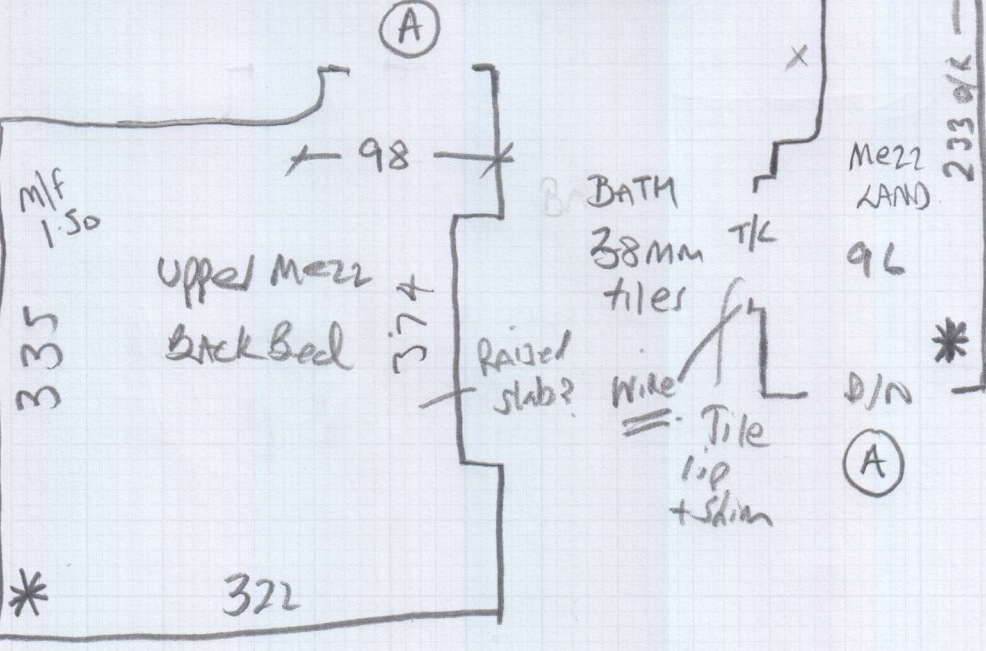 A
98
m/f
1.50
Upper Mezz
Back Bed
335
374
Raised
slab?
322
BATH
38mm
tiles
T/L
Wire
Tile
lip
+ Skim
Mezz
LAND
96
D/N
A
233 o/R